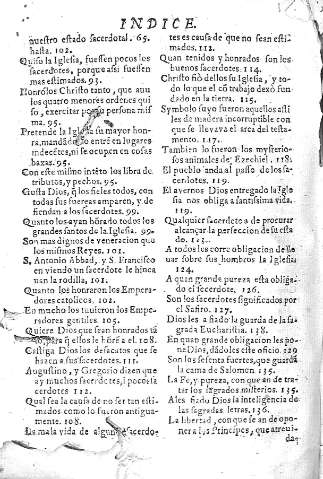 INDICE.
nuestro estado sacerdotal. 65.
hasta. 102.
Quiso la Iglesia, fuessen pocos los
sacerdotes, porque assi fuessen
mas estimados. 93.
Honrólos Christo tanto, que aun
los quatro menores ordenes qui
so, exercitar por su persona mis
ma. 95.
Pretende la Iglesia su mayor hon-
ra, mandando no entré en lugares
indecétes, ni se ocupen en cosas
baxas. 95.
Con este mismo inteto los libra de
tributos, y pechos. 95.
Gusta Dios, q̃ los fieles todos, con
todas sus fuerças amparen, y de
fiendan a los sacerdotes. 99.
Quanto los ayan hõrado todos los
grandes santos de la Iglesia. 99.
Son mas dignos de veneracion que
los mismos Reyes. 101.
S. Antonio Abbad, y S. Francisco
en viendo un sacerdote le hinca
uan la rodilla. 101.
Quanto los honraron los Empera-
dores catolicos. 102.
En mucho los tuuieron los Empe-
radores gentiles. 105.
Quiere Dios que sean honrados
para q̃ ellos le hõré a el. 108.
Castiga Dios los desacatos que se
hazen a sus sacerdotes. 111.
Augustino, y Gregorio dizen que
ay muchos sacerdotes, i pocos sa
cerdotes 112.
Qual sea la causa de no ser tan esti-
mados como lo fueron antigua-
mente. 108.
La mala vida de algunos sacerdo-
tes es causa de que no sean esti-
mados. 112.
Quan tenidos y honrados son los
buenos sacerdotes. 114.
Christo fió dellos su Iglesia, y to-
do lo que el cõ trabajo dexó fun-
dado en la tierra. 125.
Symbolo suyo fueron aquellos asti
les de madera incorruptible con
que se lleuava el arca del testa-
mento. 117.
Tambien lo fueron los mysterio-
sos animales de Ezechiel. 118.
El pueblo anda al passo de los sa-
cerdotes. 119.
El avernos Dios entregado la Igle
sia nos obliga a santissima vida.
119.
Qualquier sacerdote a de procurar
alcançar la perfeccion de su esta
do.
A todos los corre obligacion de lle
uar sobre sus hombros la Iglesia
124.
A quan grande pureza esta obliga-
do el sacerdote. 126.
Son los sacerdotes significados por
el Safiro. 127.
Dios les a fiado la guarda de la sa-
grada Eucharistia. 128.
En quan grande obligacion les po-
ne Dios, dãdoles este oficio. 129
Son los sesenta fuertes, que guardã
la cama de Salomon. 135.
La Fè, y pureza, con que an de tra-
tar los sagrados misterios. 135.
Ales fiado Dios la inteligencia de
las sagradas letras. 136.
La libertad, con que se an de opo-
ner a los Principes, que atreui-
da-